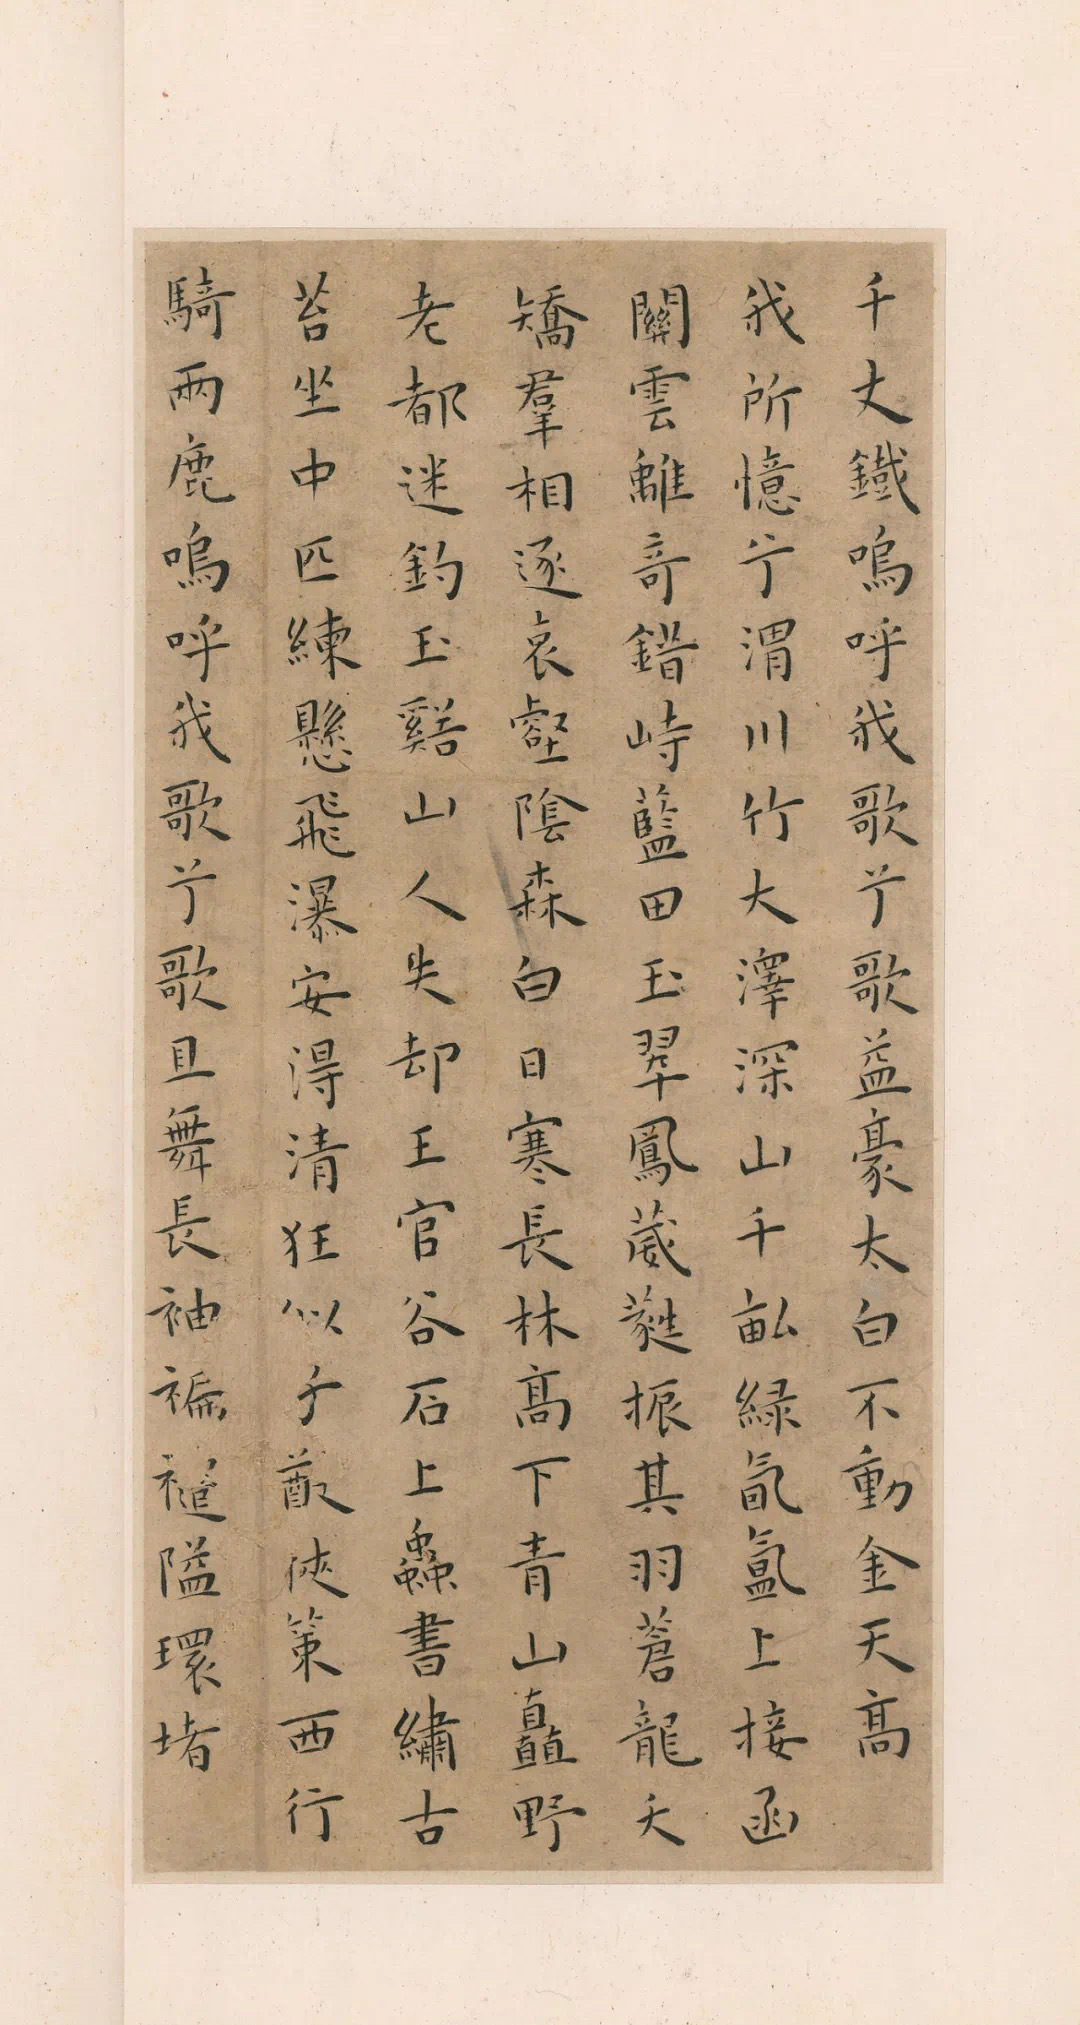 千丈鐵嗚呼我歌兮歌益豪太白不動金天高
我所憶兮渭川竹大澤深山千畝綠氤氳上接函
關雲雖奇錯峙藍田玉翠鳳葳蕤振其羽蒼龍夭
矯羣相逐哀壑陰森白日寒長林高下青山矗野
老都迷釣玉谿山人失却王官谷石上蟲書繡古
苔坐中匹練懸飛瀑安得清狂似子猷俠策西行
騎兩鹿嗚呼我歌兮歌且舞長袖褊褼隘環堵